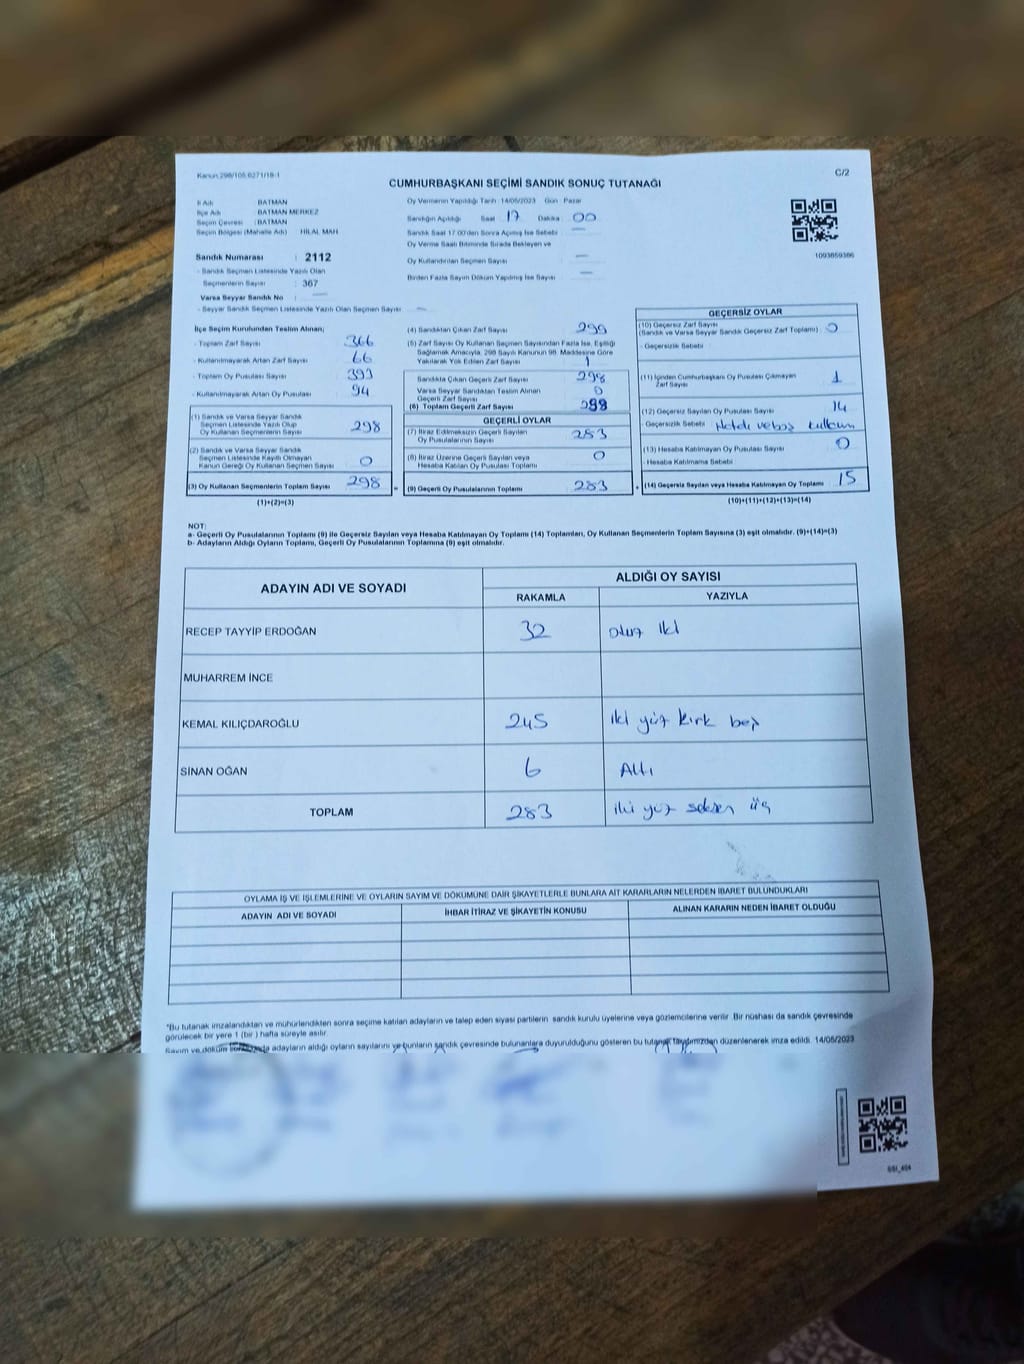 Kanun:298/105,6271/18-1
C/2
CUMHURBAŞKANI SEÇİMİ SANDIK SONUÇ TUTANAĞI
İl Adı : BATMAN
İlçe Adı : BATMAN MERKEZ
Seçim Çevresi : BATMAN
Seçim Bölgesi (Mahalle Adı) HİLAL MAH
Sandık Numarası : 2112
- Sandık Seçmen Listesinde Yazılı Olan
Seçmenlerin Sayısı : 367
Varsa Seyyar Sandık No : —
- Seyyar Sandık Seçmen Listesinde Yazılı Olan Seçmen Sayısı : —
Oy Vermenin Yapıldığı Tarih :14/05/2023 Gün : Pazar
Sandığın Açıldığı Saat : 17 Dakika : 00
Sandık Saat 17.00'den Sonra Açılmış İse Sebebi : —
Oy Verme Saati Bitiminde Sırada Bekleyen ve
Oy Kullandırılan Seçmen Sayısı : —
Birden Fazla Sayım Döküm Yapılmış İse Sayısı : —
1093859386
İlçe Seçim Kurulundan Teslim Alınan;
- Toplam Zarf Sayısı : 366
- Kullanılmayarak Artan Zarf Sayısı : 66
- Toplam Oy Pusulası Sayısı : 393
- Kullanılmayarak Artan Oy Pusulası : 94
(1) Sandık ve Varsa Seyyar Sandık
Seçmen Listesinde Yazılı Olup
Oy Kullanan Seçmenlerin Sayısı : 298
(2) Sandık ve Varsa Seyyar Sandık
Seçmen Listesinde Kayıtlı Olmayan
Kanun Gereği Oy Kullanan Seçmen Sayısı : 0
(3) Oy Kullanan Seçmenlerin Toplam Sayısı : 298
(1)+(2)=(3)
(4) Sandıktan Çıkan Zarf Sayısı : 299
(5) Zarf Sayısı Oy Kullanan Seçmen Sayısından Fazla İse, Eşitliği
Sağlamak Amacıyla, 298 Sayılı Kanunun 98. Maddesine Göre
Yakılarak Yok Edilen Zarf Sayısı : 1
Sandıkta Çıkan Geçerli Zarf Sayısı : 298
Varsa Seyyar Sandıktan Teslim Alınan
Geçerli Zarf Sayısı : 0
(6) Toplam Geçerli Zarf Sayısı : 298
GEÇERLİ OYLAR
(7) İtiraz Edilmeksizin Geçerli Sayılan
Oy Pusulalarının Sayısı : 283
(8) İtiraz Üzerine Geçerli Sayılan veya
Hesaba Katılan Oy Pusulası Toplamı : 0
(9) Geçerli Oy Pusulalarının Toplamı : 283
GEÇERSİZ OYLAR
(10) Geçersiz Zarf Sayısı
(Sandık ve Varsa Seyyar Sandık Geçersiz Zarf Toplamı) : 0
- Geçersizlik Sebebi :
(11) İçinden Cumhurbaşkanı Oy Pusulası Çıkmayan
Zarf Sayısı : 1
(12) Geçersiz Sayılan Oy Pusulası Sayısı : 14
- Geçersizlik Sebebi : Hatalı ve boş kullanım
(13) Hesaba Katılmayan Oy Pusulası Sayısı : 0
- Hesaba Katılmama Sebebi :
(14) Geçersiz Sayılan veya Hesaba Katılmayan Oy Toplamı : 15
(10)+(11)+(12)+(13)=(14)
NOT:
a- Geçerli Oy Pusulalarının Toplamı (9) ile Geçersiz Sayılan veya Hesaba Katılmayan Oy Toplamı (14) Toplamları, Oy Kullanan Seçmenlerin Toplam Sayısına (3) eşit olmalıdır. (9)+(14)=(3)
b- Adayların Aldığı Oyların Toplamı, Geçerli Oy Pusulalarının Toplamına (9) eşit olmalıdır.
ADAYIN ADI VE SOYADI
ALDIĞI OY SAYISI
RAKAMLA YAZIYLA
RECEP TAYYİP ERDOĞAN 32 otuz iki
MUHARREM İNCE
KEMAL KILIÇDAROĞLU 245 iki yüz kırk beş
SİNAN OĞAN 6 Altı
TOPLAM 283 iki yüz seksen üç
OYLAMA İŞ VE İŞLEMLERİNE VE OYLARIN SAYIM VE DÖKÜMÜNE DAİR ŞİKAYETLERLE BUNLARA AİT KARARLARIN NELERDEN İBARET BULUNDUKLARI
ADAYIN ADI VE SOYADI İHBAR İTİRAZ VE ŞİKAYETİN KONUSU ALINAN KARARIN NEDEN İBARET OLDUĞU
*Bu tutanak imzalandıktan ve mühürlendikten sonra seçime katılan adayların ve talep eden siyasi partilerin sandık kurulu üyelerine veya gözlemcilerine verilir. Bir nüshası da sandık çevresinde
görülecek bir yere 1 (bir) hafta süreyle asılır.
Sayım ve döküm sonucunda adayların aldığı oyların sayılarını ve bunların sandık çevresinde bulunanlara duyurulduğunu gösteren bu tutanak tarafımızdan düzenlenerek imza edildi. 14/05/2023